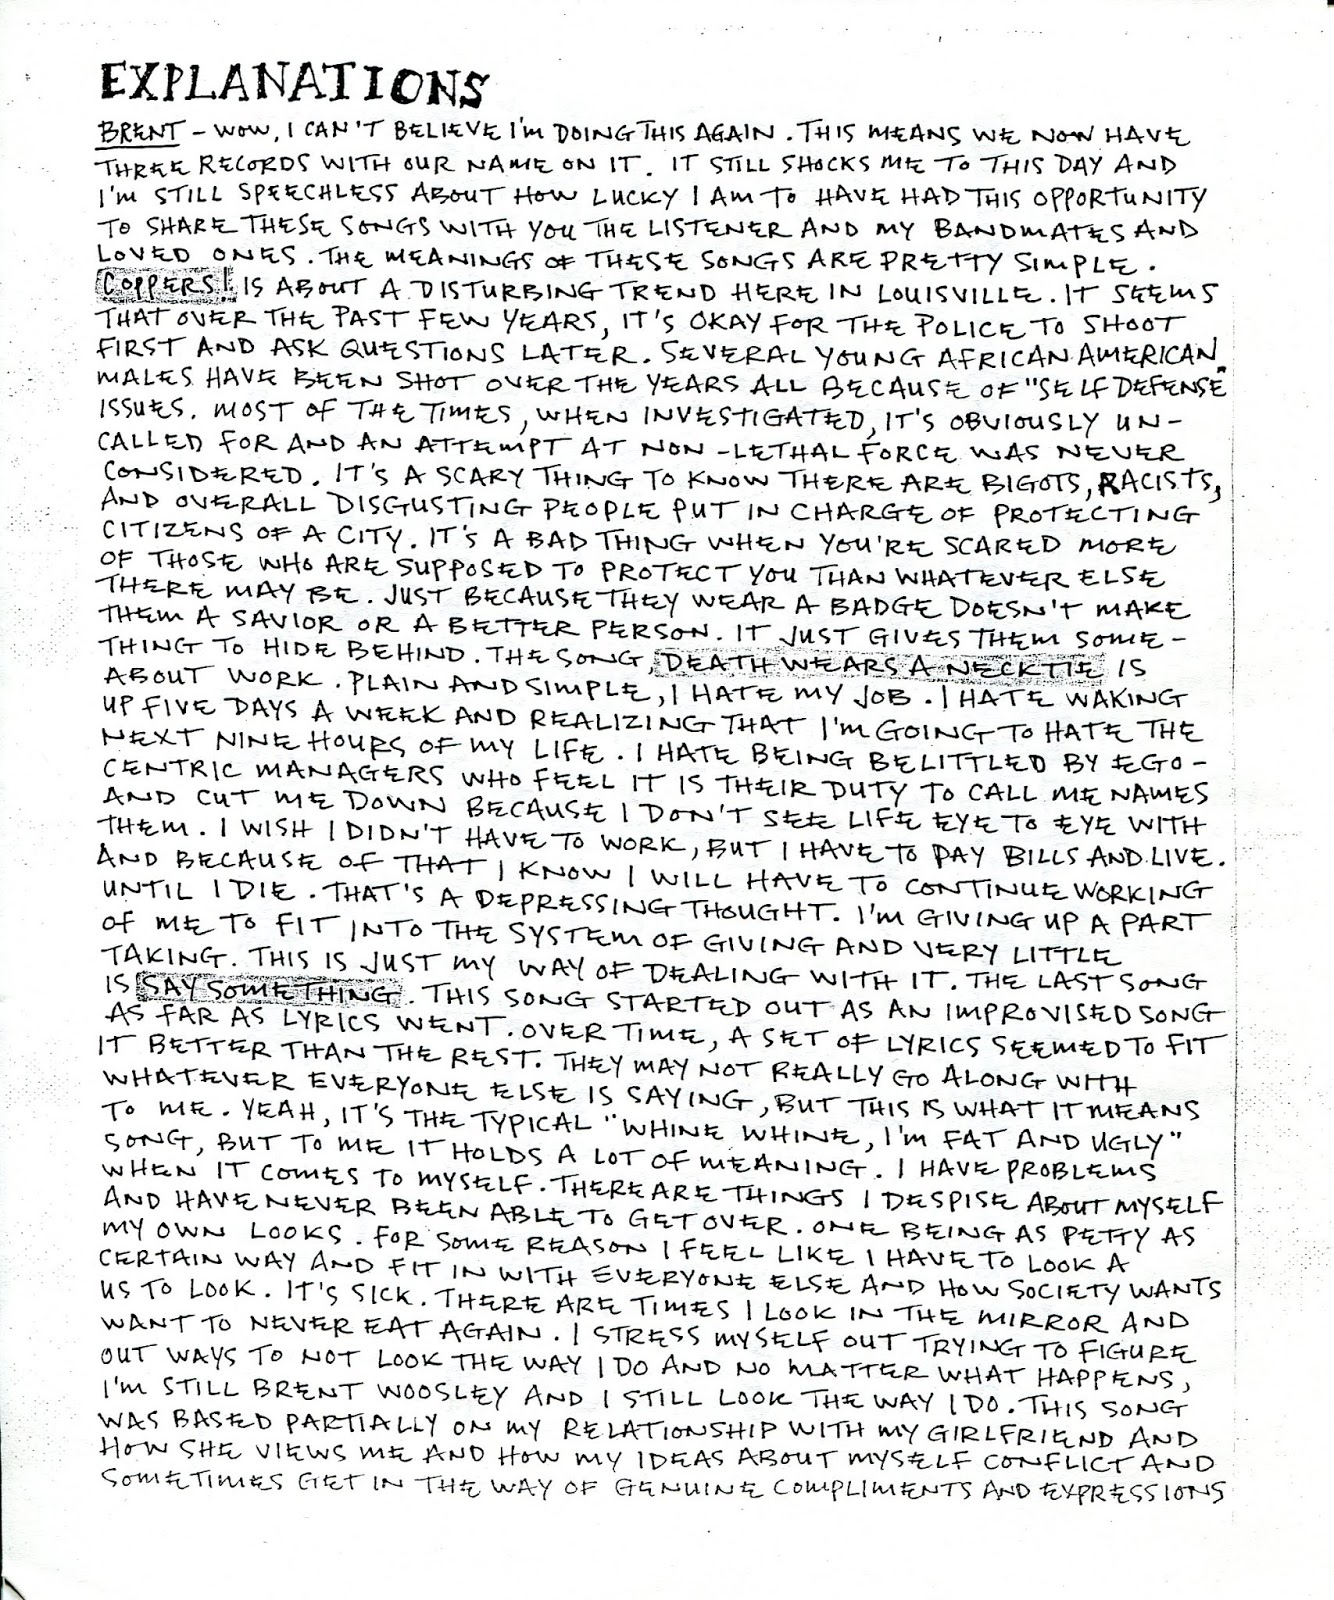 EXPLANATIONS
BRENT - WOW, I CAN'T BELIEVE I'm DOING THIS AGAIN. THIS MEANS WE NOW HAVE
THREE RECORDS WITH OUR NAME ON IT. IT STILL SHOCKS ME TO THIS DAY AND
I'm STILL SPEECHLESS ABOUT HOW LUCKY I AM TO HAVE HAD THIS OPPORTUNITY
TO SHARE THESE SONGS WITH YOU THE LISTENER AND MY BANDMATES AND
LOVED ONES. THE MEANINGS OF THESE SONGS ARE PRETTY SIMPLE.
COPPERS! IS ABOUT A DISTURBING TREND HERE IN LOUISVILLE. IT SEEMS
THAT OVER THE PAST FEW YEARS, IT'S OKAY FOR THE POLICE TO SHOOT
FIRST AND ASK QUESTIONS LATER. SEVERAL YOUNG AFRICAN AMERICAN
MALES HAVE BEEN SHOT OVER THE YEARS ALL BECAUSE OF "SELF DEFENSE"
ISSUES. MOST OF THE TIMES, WHEN INVESTIGATED, IT'S OBVIOUSLY UN-
CALLED FOR AND AN ATTEMPT AT NON-LETHAL FORCE WAS NEVER
CONSIDERED. IT'S A SCARY THING TO KNOW THERE ARE BIGOTS, RACISTS,
AND OVERALL DISGUSTING PEOPLE PUT IN CHARGE OF PROTECTING
CITIZENS OF A CITY. IT'S A BAD THING WHEN YOU'RE SCARED MORE
OF THOSE WHO ARE SUPPOSED TO PROTECT YOU THAN WHATEVER ELSE
THERE MAY BE. JUST BECAUSE THEY WEAR A BADGE DOESN'T MAKE
THEM A SAVIOR OR A BETTER PERSON. IT JUST GIVES THEM SOME-
THING TO HIDE BEHIND. THE SONG, DEATH WEARS A NECKTIE IS
ABOUT WORK. PLAIN AND SIMPLE, I HATE MY JOB. I HATE WAKING
UP FIVE DAYS A WEEK AND REALIZING THAT I'm GOING TO HATE THE
NEXT NINE HOURS OF MY LIFE. I HATE BEING BELITTLED BY EGO-
CENTRIC MANAGERS WHO FEEL IT IS THEIR DUTY TO CALL ME NAMES
AND CUT ME DOWN BECAUSE I DON'T SEE LIFE EYE TO EYE WITH
THEM. I WISH I DIDN'T HAVE TO WORK, BUT I HAVE TO PAY BILLS AND LIVE.
AND BECAUSE OF THAT I KNOW I WILL HAVE TO CONTINUE WORKING
UNTIL I DIE. THAT'S A DEPRESSING THOUGHT. I'm GIVING UP A PART
OF ME TO FIT INTO THE SYSTEM OF GIVING AND VERY LITTLE
TAKING. THIS IS JUST MY WAY OF DEALING WITH IT. THE LAST SONG
IS SAY SOMETHING. THIS SONG STARTED OUT AS AN IMPROVISED SONG
AS FAR AS LYRICS WENT. OVER TIME, A SET OF LYRICS SEEMED TO FIT
IT BETTER THAN THE REST. THEY MAY NOT REALLY GO ALONG WITH
WHATEVER EVERYONE ELSE IS SAYING, BUT THIS IS WHAT IT MEANS
TO ME. YEAH, IT'S THE TYPICAL "WHINE WHINE, I'm FAT AND UGLY"
SONG, BUT TO ME IT HOLDS A LOT OF MEANING. I HAVE PROBLEMS
WHEN IT COMES TO MYSELF. THERE ARE THINGS I DESPISE ABOUT MYSELF
AND HAVE NEVER BEEN ABLE TO GET OVER. ONE BEING AS PETTY AS
MY OWN LOOKS. FOR SOME REASON I FEEL LIKE I HAVE TO LOOK A
CERTAIN WAY AND FIT IN WITH EVERYONE ELSE AND HOW SOCIETY WANTS
US TO LOOK. IT'S SICK. THERE ARE TIMES I LOOK IN THE MIRROR AND
WANT TO NEVER EAT AGAIN. I STRESS MYSELF OUT TRYING TO FIGURE
OUT WAYS TO NOT LOOK THE WAY I DO AND NO MATTER WHAT HAPPENS,
I'm STILL BRENT WOOSLEY AND I STILL LOOK THE WAY I DO. THIS SONG
WAS BASED PARTIALLY ON MY RELATIONSHIP WITH MY GIRLFRIEND AND
HOW SHE VIEWS ME AND HOW MY IDEAS ABOUT MYSELF CONFLICT AND
SOMETIMES GET IN THE WAY OF GENUINE COMPLIMENTS AND EXPRESSIONS